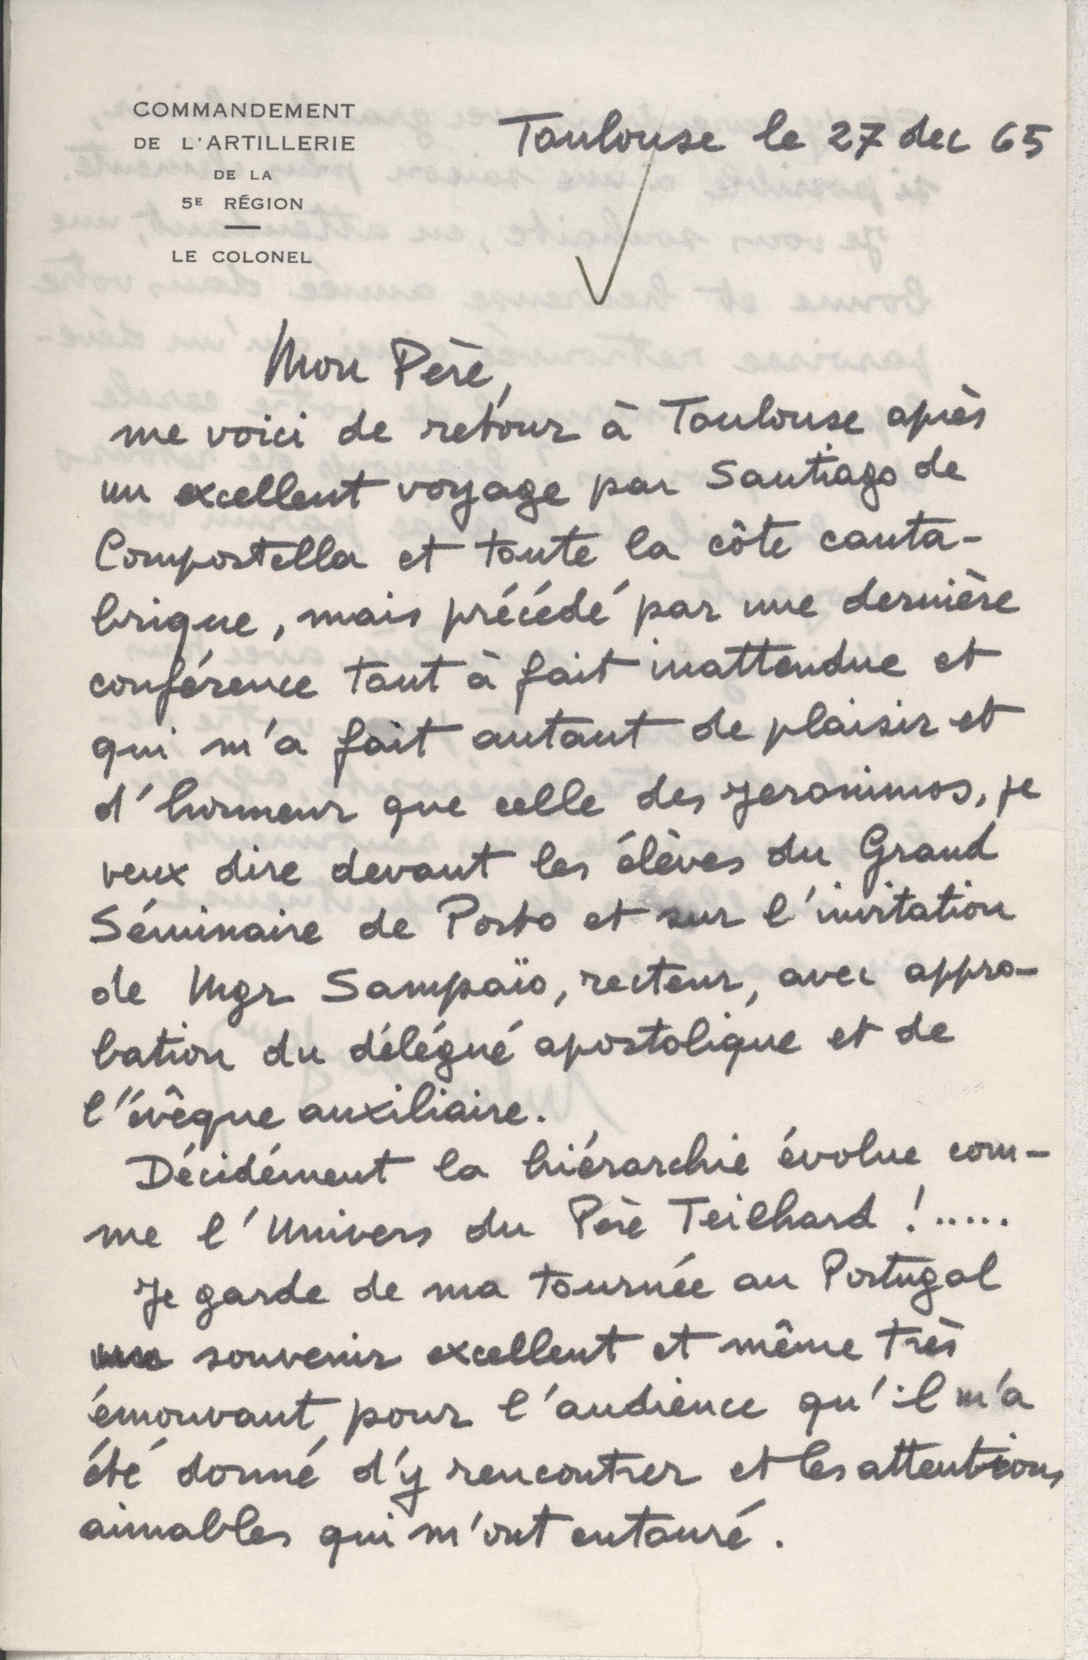 COMMANDEMENT
DE L'ARTILLERIE
DE LA
5E RÉGION
LE COLONEL
Toulouse le 27 dec 65
Mon Père,
me voici de retour à Toulouse après
un excellent voyage par Santiago de
Compostella et toute la côte canta-
brique, mais précédé par une dernière
conférence tout à fait inattendue et
qui m'a fait autant de plaisir et
d'honneur que celle des Jeronimos, je
veux dire devant les élèves du Grand
Séminaire de Porto et sur l'invitation
de Mgr Sampaïo, recteur, avec appro-
bation du délégué apostolique et de
l'évêque auxiliaire.
Décidément la hiérarchie évolue com-
me l'Univers du Père Teilhard !.....
Je garde de ma tournée au Portugal
souvenir excellent et même très
émouvant, pour l'audience qu'il m'a
été donné d'y rencontrer et les attentions
aimables qui m'ont entouré.